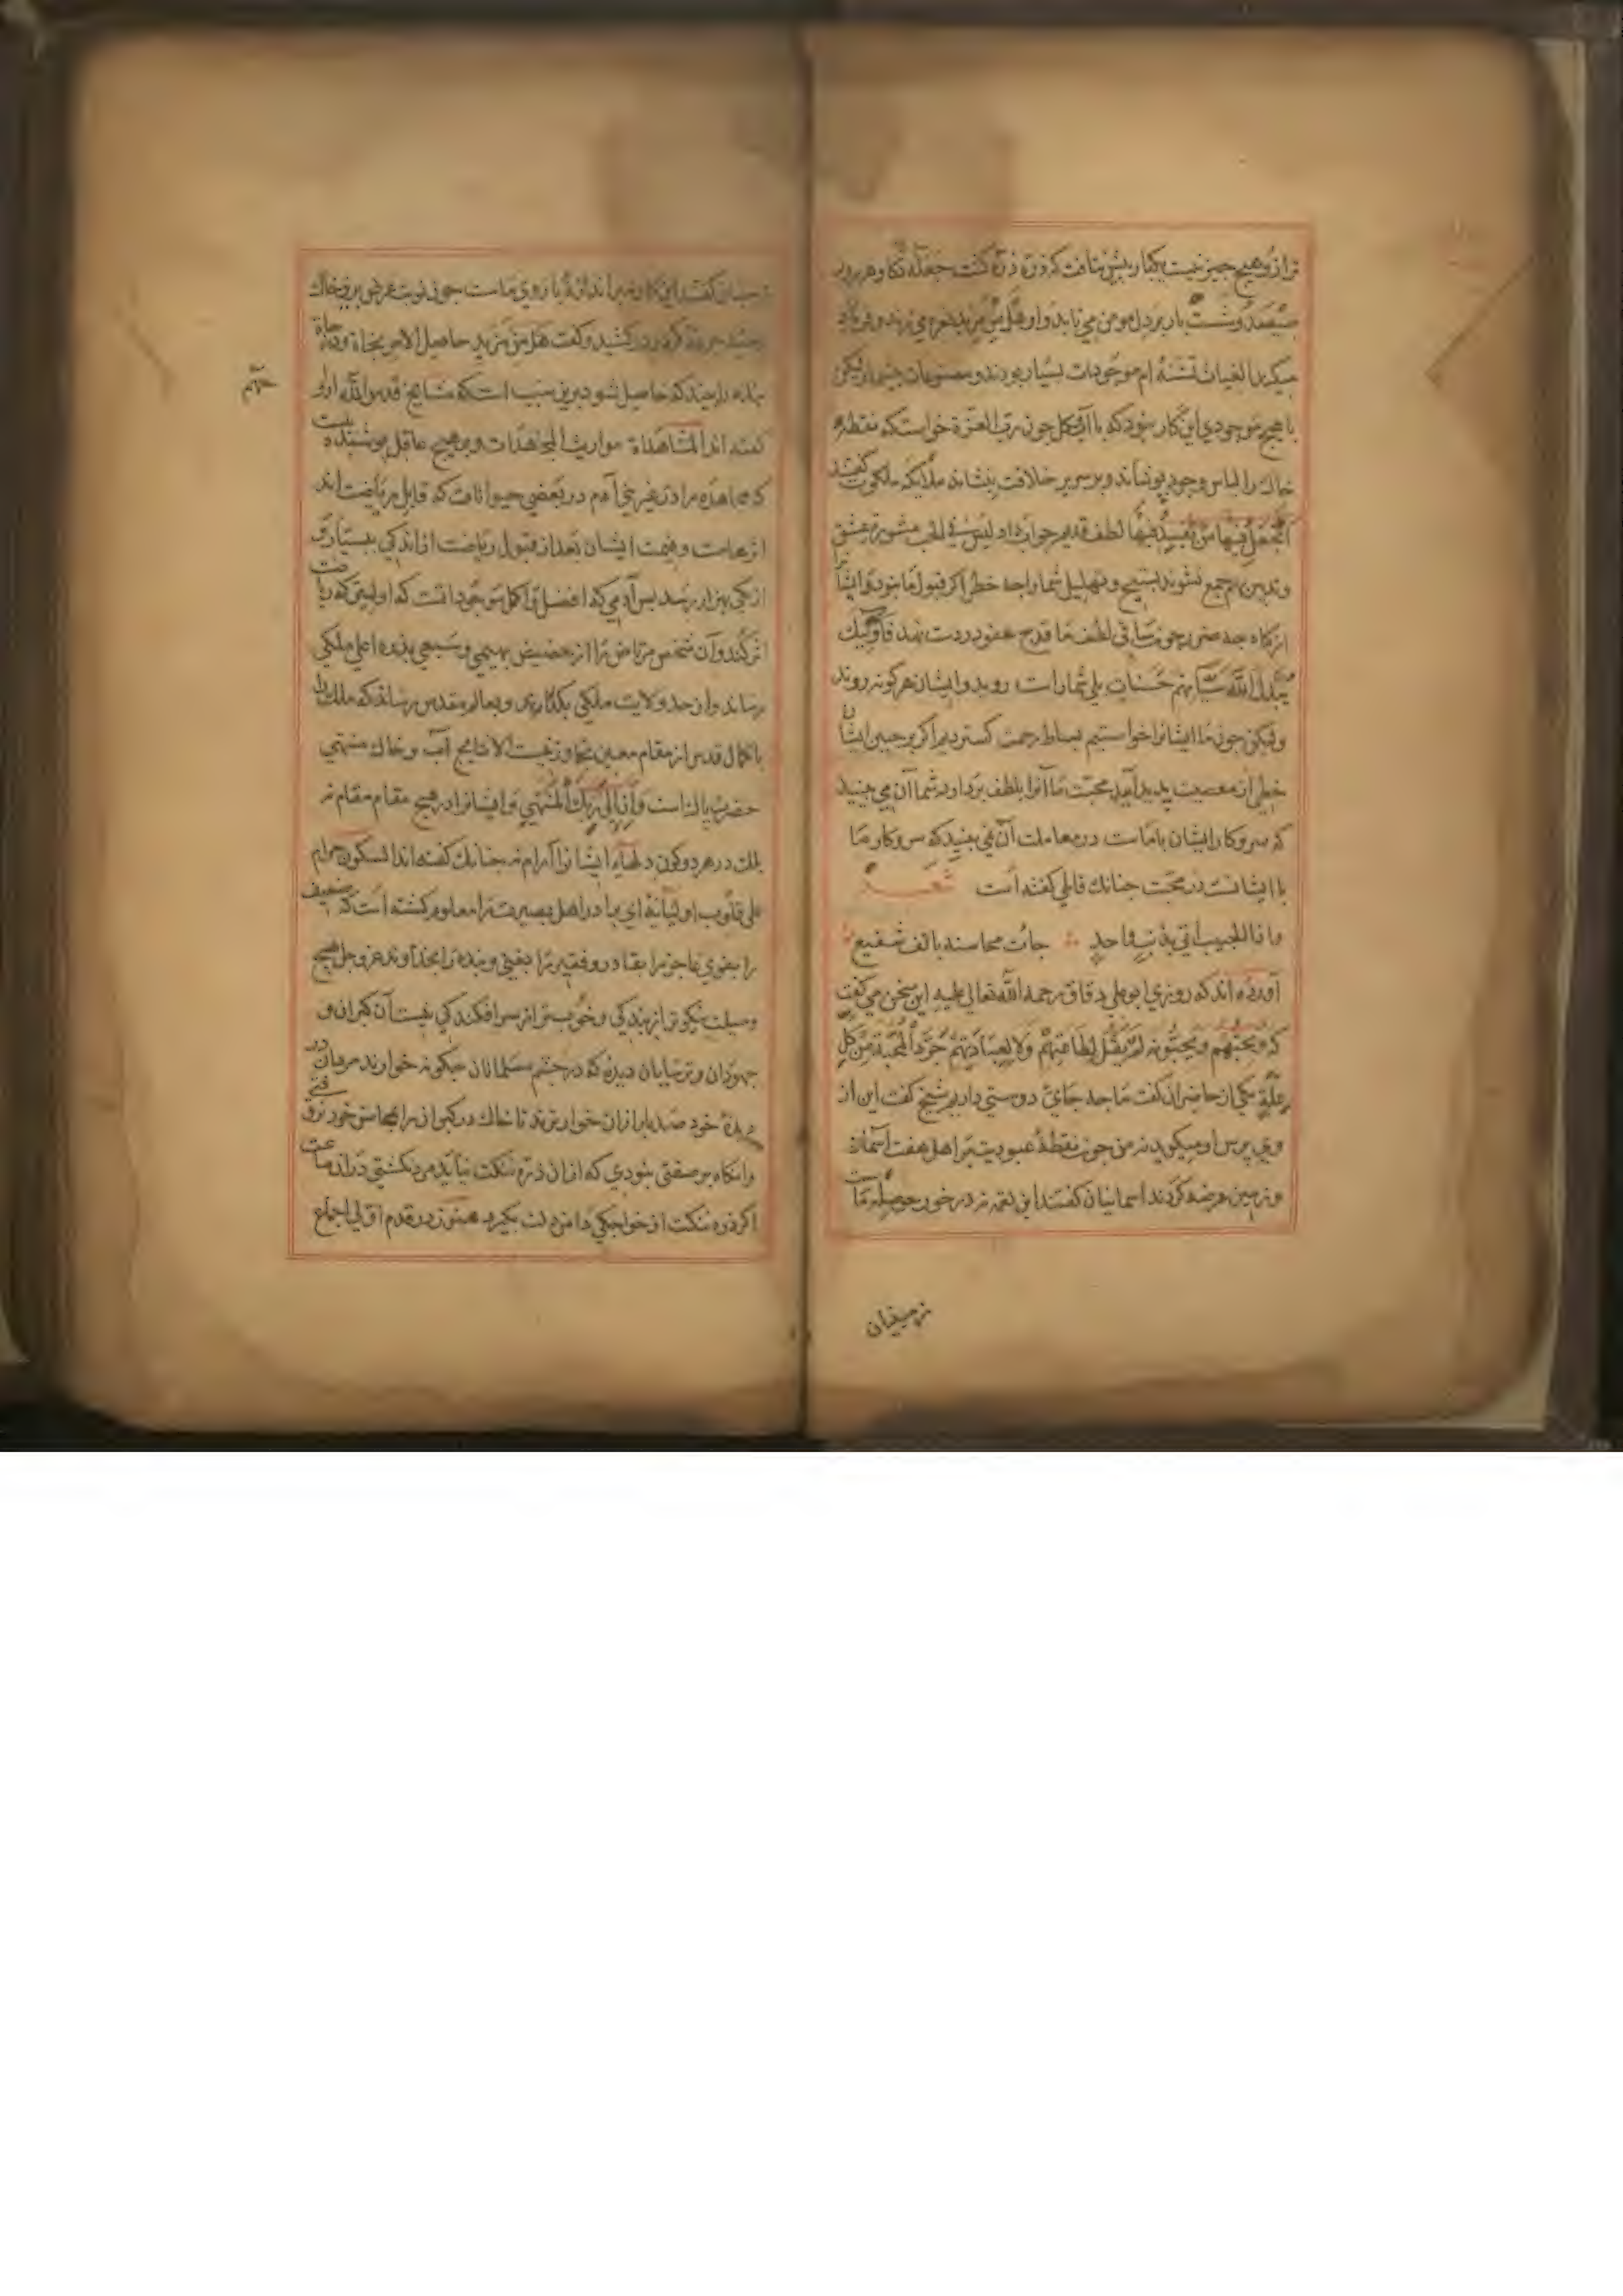 تر از و هیچ چیز نیست یکبار بیش نتافت که ذره ذره گشت جعله دکا و هر روز
سیصد و شست بار بر دل مومن می تابد و او هل من مزید نعره می زند و فریاد
میکند الغیاث تشنه ام موجودات بسیار بودند و مصنوعات بیشمار لیکن
با هیچ موجودی این کار نبود که با آب و کل چون رب العزة خواست که نقطه
خاک را لباس وجود پوشاند و بر سریر خلافت بنشاند ملایکه ملکوت کفتند
أتجعل فیها من یفسد فیها لطف قدیم جواب داد لیس فی الحب مشورة عشق
و تدبیر جمع نشوند تسبیح و تهلیل شما را چه خطر اگر قبول ما نبود و ایشانرا
از کناه چه ضرر چون ساقی لطف ما قدح عفو در دست نهد فأولئک
یبدل الله سیأتهم حسنات بلی شما راست روید و ایشان هر کونه روند
ولیکن چون ما ایشانرا خواستیم بساط رحمت کستردیم اکر بر جبین ایشان
خطی از معصیت پدید آید محبت ما آنرا بلطف بردارد شما آن می بینید
که سر و کار ایشان با ماست در معاملت آن نمی بینید که سر و کار ما
با ایشانست در محبت چنانک قایلی کفته است شعر
و اذا الحبیب اتی بذنب واحد جاءت محاسنه بالف شفیع
آورده اند که روزی ابو علی دقاق رحمة الله تعالی علیه این سخن می کفت
که یحبهم و یحبونه لم یقل لطاعتهم ولا لعبادتهم جرد المحبة من کل
علة یکی از حاضران کفت ما چه جای دوستی داریم شیخ کفت این از
وی پرس او میکوید نه من چون نقطهٔ عبودیت بر اهل هفت آسمان
و زمین عرضه کردند اسمانیان کفتند این لقمه نه در خور حوصلهٔ ماست
زمینیان
زمینیان کفتند این کار نه براندازهٔ بازوی ماست چون نوبت عرض بر خاک
رسید جرعهٔ درد در کشید و کفت هل من مزید حاصل الامر نجاة و درجات
بنده را جهد که حاصل شود برین سبب است که مشایخ قدس الله ارواحهم
کفته اند المشاهدات مواریث المجاهدات و بر هیچ عاقل پوشیده نیست
که مجاهده را در غیر بنی آدم در بعضی حیوانات که قابل ریاضت اند
اثرهاست و قیمت ایشان بعد از قبول ریاضت از اندکی ببسیار و
از یکی بهزار رسد پس آدمی که افضل و اکمل موجوداتست که اولیتر که ریاضت
اثر کند و آن شخص مرتاض را از حضیض بهیمی و سبعی بذروه اعلی ملکی
رساند و از حد ولایت ملکی بکذراند و بعالم مقدس رساند که ملک را
با کمال قدس از مقام معین تجاوز نیست الا نتایج آب و خاک منتهی
حضرت پاک است و أن إلی ربک المنتهی و ایشانرا در هیچ مقام مقام نه
بلک در هر دو کون دلهاء ایشانرا آرام نه چنانک کفته اند السکون حرام
علی قلوب اولیائه ای برادر اهل بصیرت را معلوم کشته است که ضعیف
را بقوی عاجز را بقادر و فقیر را بغنی و بنده را بخداوند عز و جل هیچ
وسیلت نیکوتر از بندکی و خوبتر از سرافکندکی نیست آن کبران و
جهودان و ترسایان دیده که در چشم مسلمانان چکونه خوارند مردان در
دیدهٔ خود صد بار ازان خوارترند تا خاک در کبران را بمحاسن خود نرفتی
وانکاه بر صفتی نبودی که از ان ذره شکت نیاید مرد نکشتی در ان ساعت
اکر ذره شکت از خواجکی دامن دلت بکیرد هنوز در قدم اول اجماع